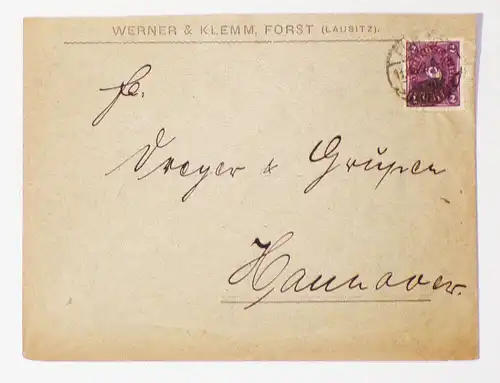 WERNER & KLEMM, FORST (LAUSITZ).
2 2
Fa.
Dreyer & Grupen
Hannover.
2 2